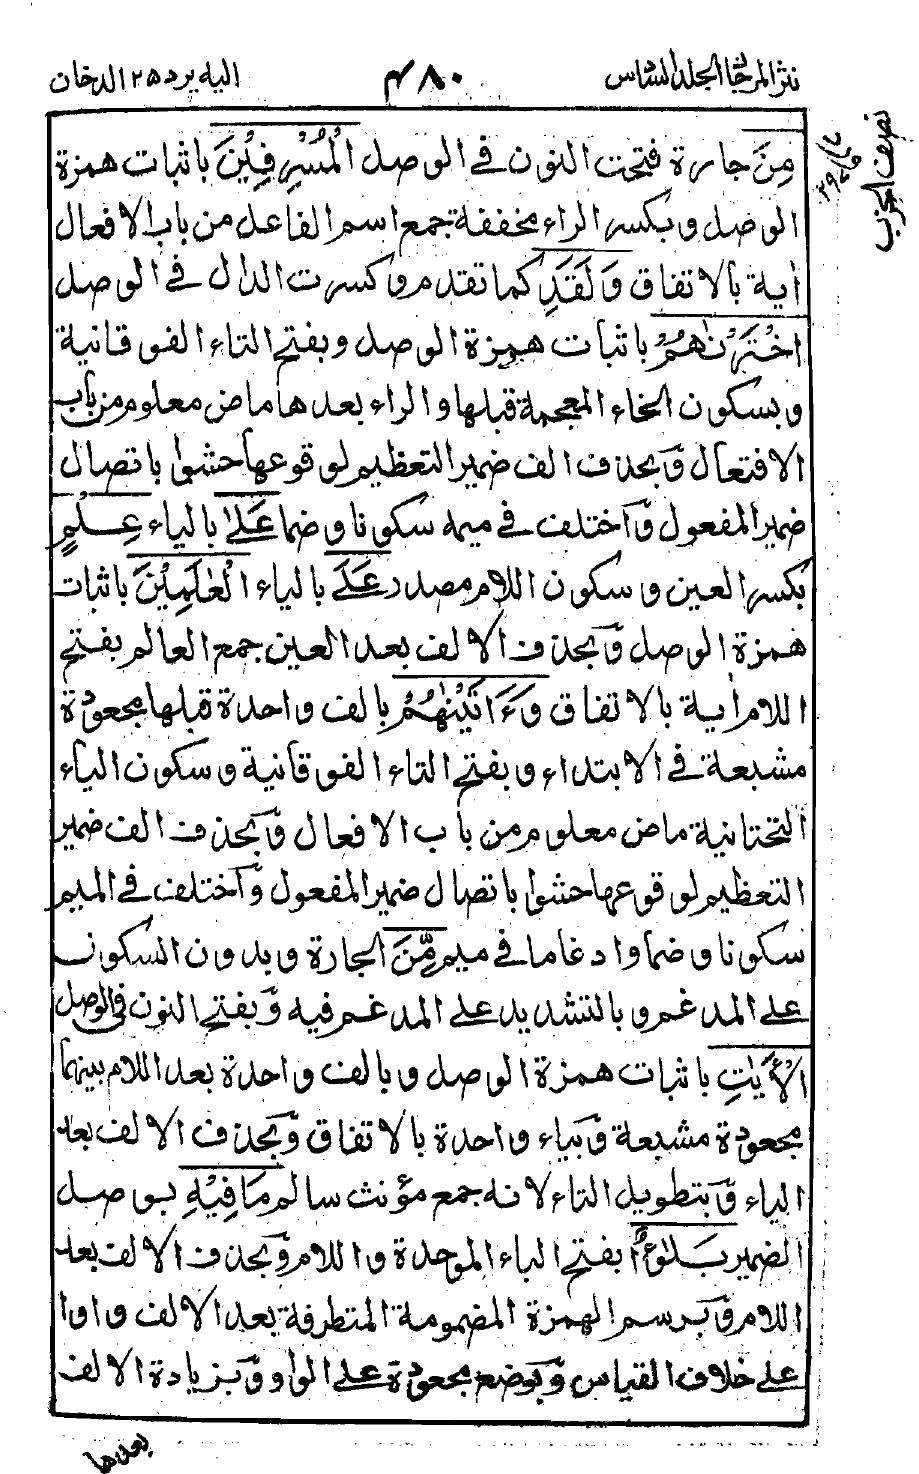 نثر المرجان الجلد السادس ۴۸۰ اليه يرد ۲۵ الدخان
مِنَ جارة فتحت النون في الوصل الْمُسْرِفِيْنَ باثبات همزة
الوصل وبكسر الراء مخففة جمع اسم الفاعل من باب الافعال
اٰية بالاتفاق وَلَقَدِ كما تقدم وكسرت الدال في الوصل
اخْتَرْنٰهُمْ باثبات همزة الوصل وبفتح التاء الفوقانية
وبسكون الخاء المعجمة قبلها والراء بعدها ماض معلوم من باب
الافتعال وٓبحذف الف ضمير التعظيم لوقوعها حشوا باتصال
ضمير المفعول وٓاختلف في ميمه سكونا وضما عَلٰى بالياء عِلْمٍ
بكسر العين وسكون اللام مصدر عَلَى بالياء الْعٰلَمِيْنَ باثبات
همزة الوصل وٓبحذف الالف بعد العين جمع العالم بفتح
اللام اٰية بالاتفاق وَءَاتَيْنٰهُمْ بالف واحدة قبلها مجعودة
مشبعة في الابتداء وبفتح التاء الفوقانية وسكون الياء
التحتانية ماض معلوم من باب الافعال وٓبحذف الف ضمير
التعظيم لوقوعها حشوا باتصال ضمير المفعول وٓاختلف في الميم
سكونا وضما وادغاما في ميم مِّنَ الجارة وبدون السكون
على المدغم وبالتشديد على المدغم فيه وٓبفتح النون في الوصل
الْاٰيٰتِ باثبات همزة الوصل وبالف واحدة بعد اللام بينهما
مجعودة مشبعة وٓبياء واحدة بالاتفاق وٓبحذف الالف بعد
الياء وٓبتطويل التاء لانه جمع مؤنث سالم مَا فِيْهِ بوصل
الضمير بَلٰٓؤٌا بفتح الباء الموحدة واللام وٓبحذف الالف بعد
اللام وٓبرسم الهمزة المضمومة المتطرفة بعد الالف واوا
على خلاف القياس وٓبوضع مجعودة على الواو وٓبزيادة الالف
بعدها
نصف الحزب